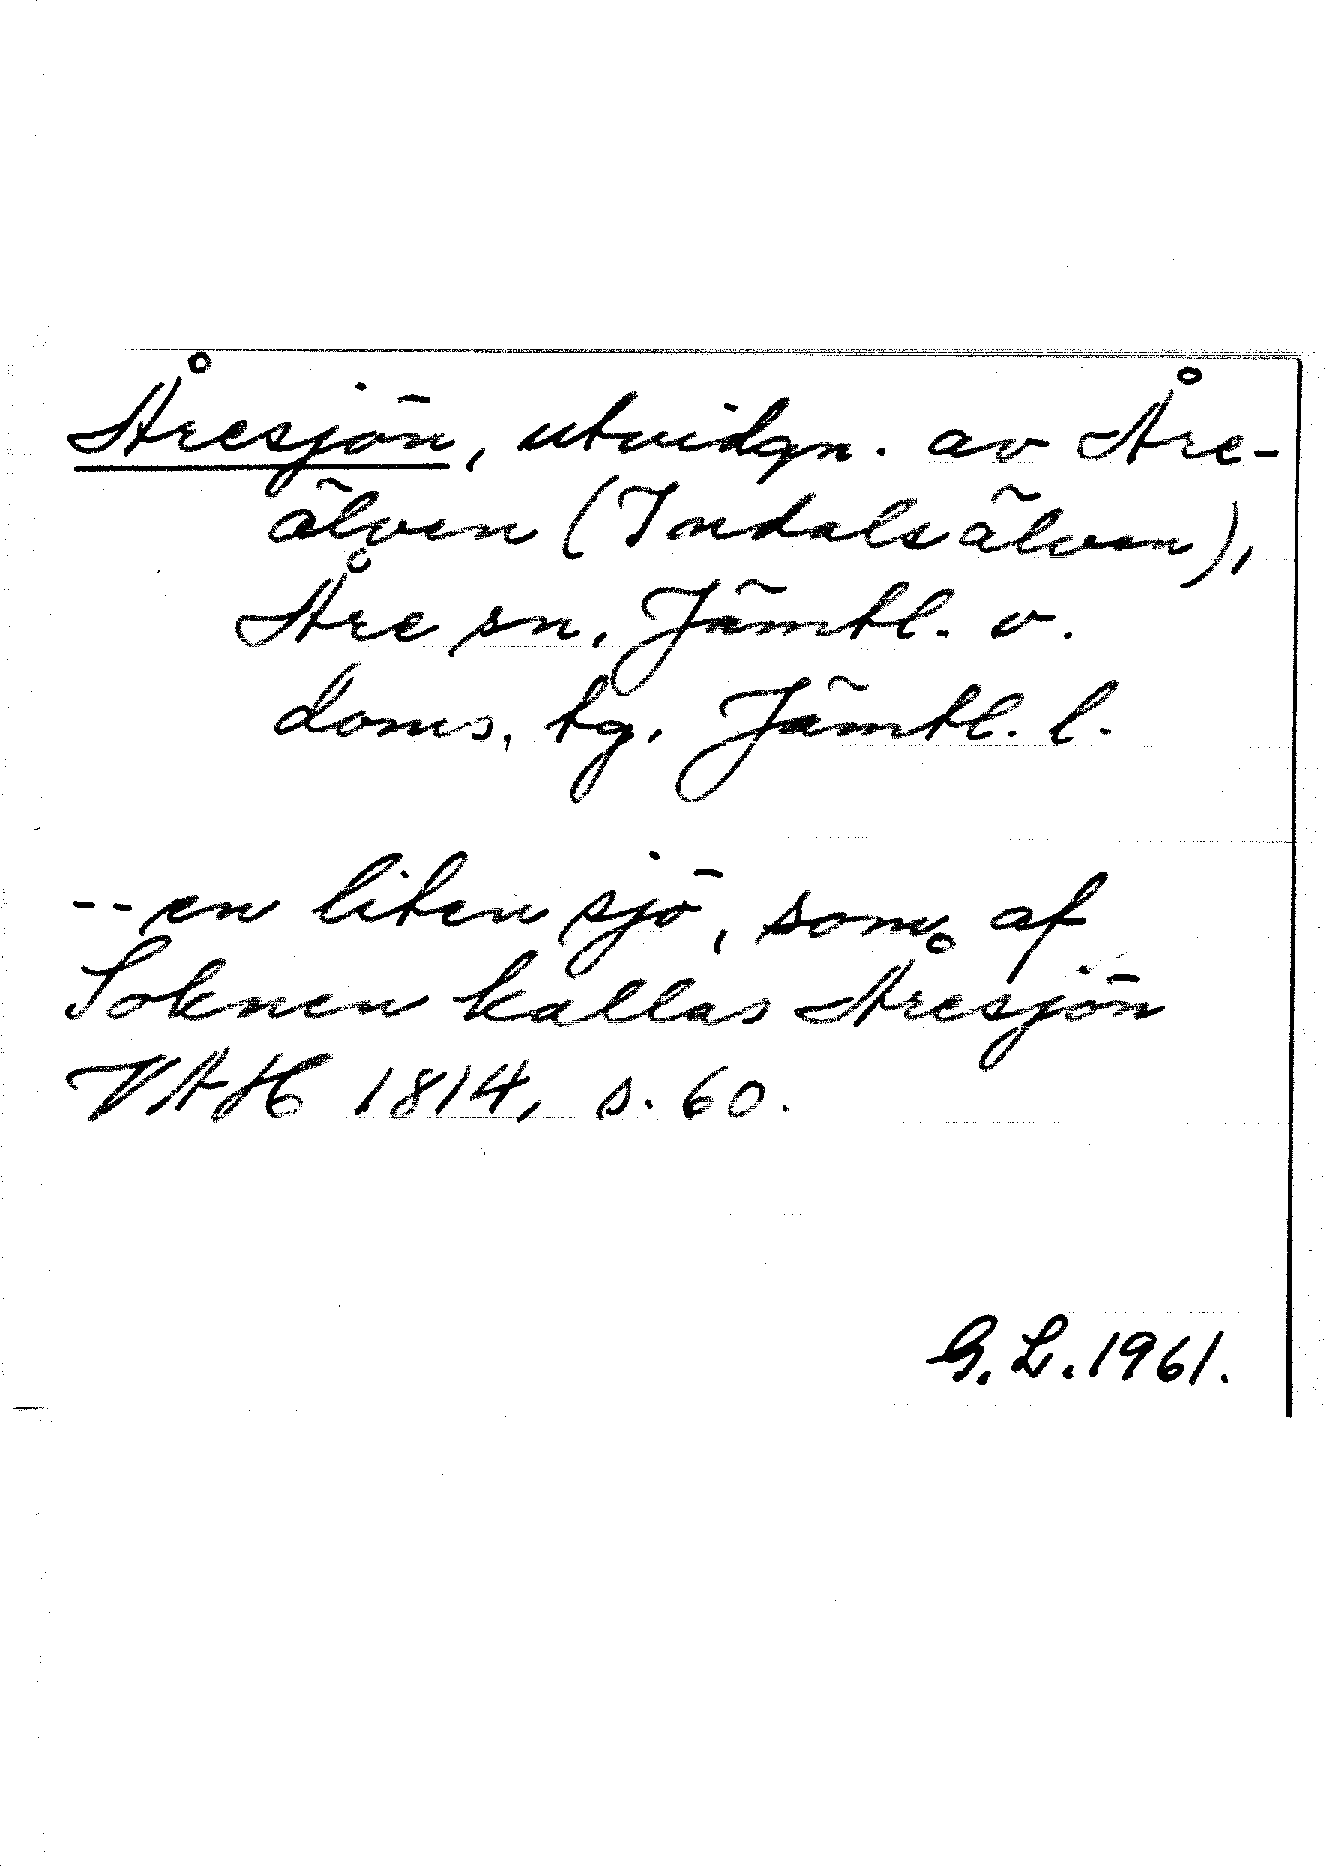 Åresjön, utvidgn. av Åre-
älven (Indalsälven),
Åre sn, Jämtl. v.
doms. tg, Jämtl. l.
-- en liten sjö, som af
Soknen kallas Åresjön
VAH 1814, s. 60.
G. L. 1961.